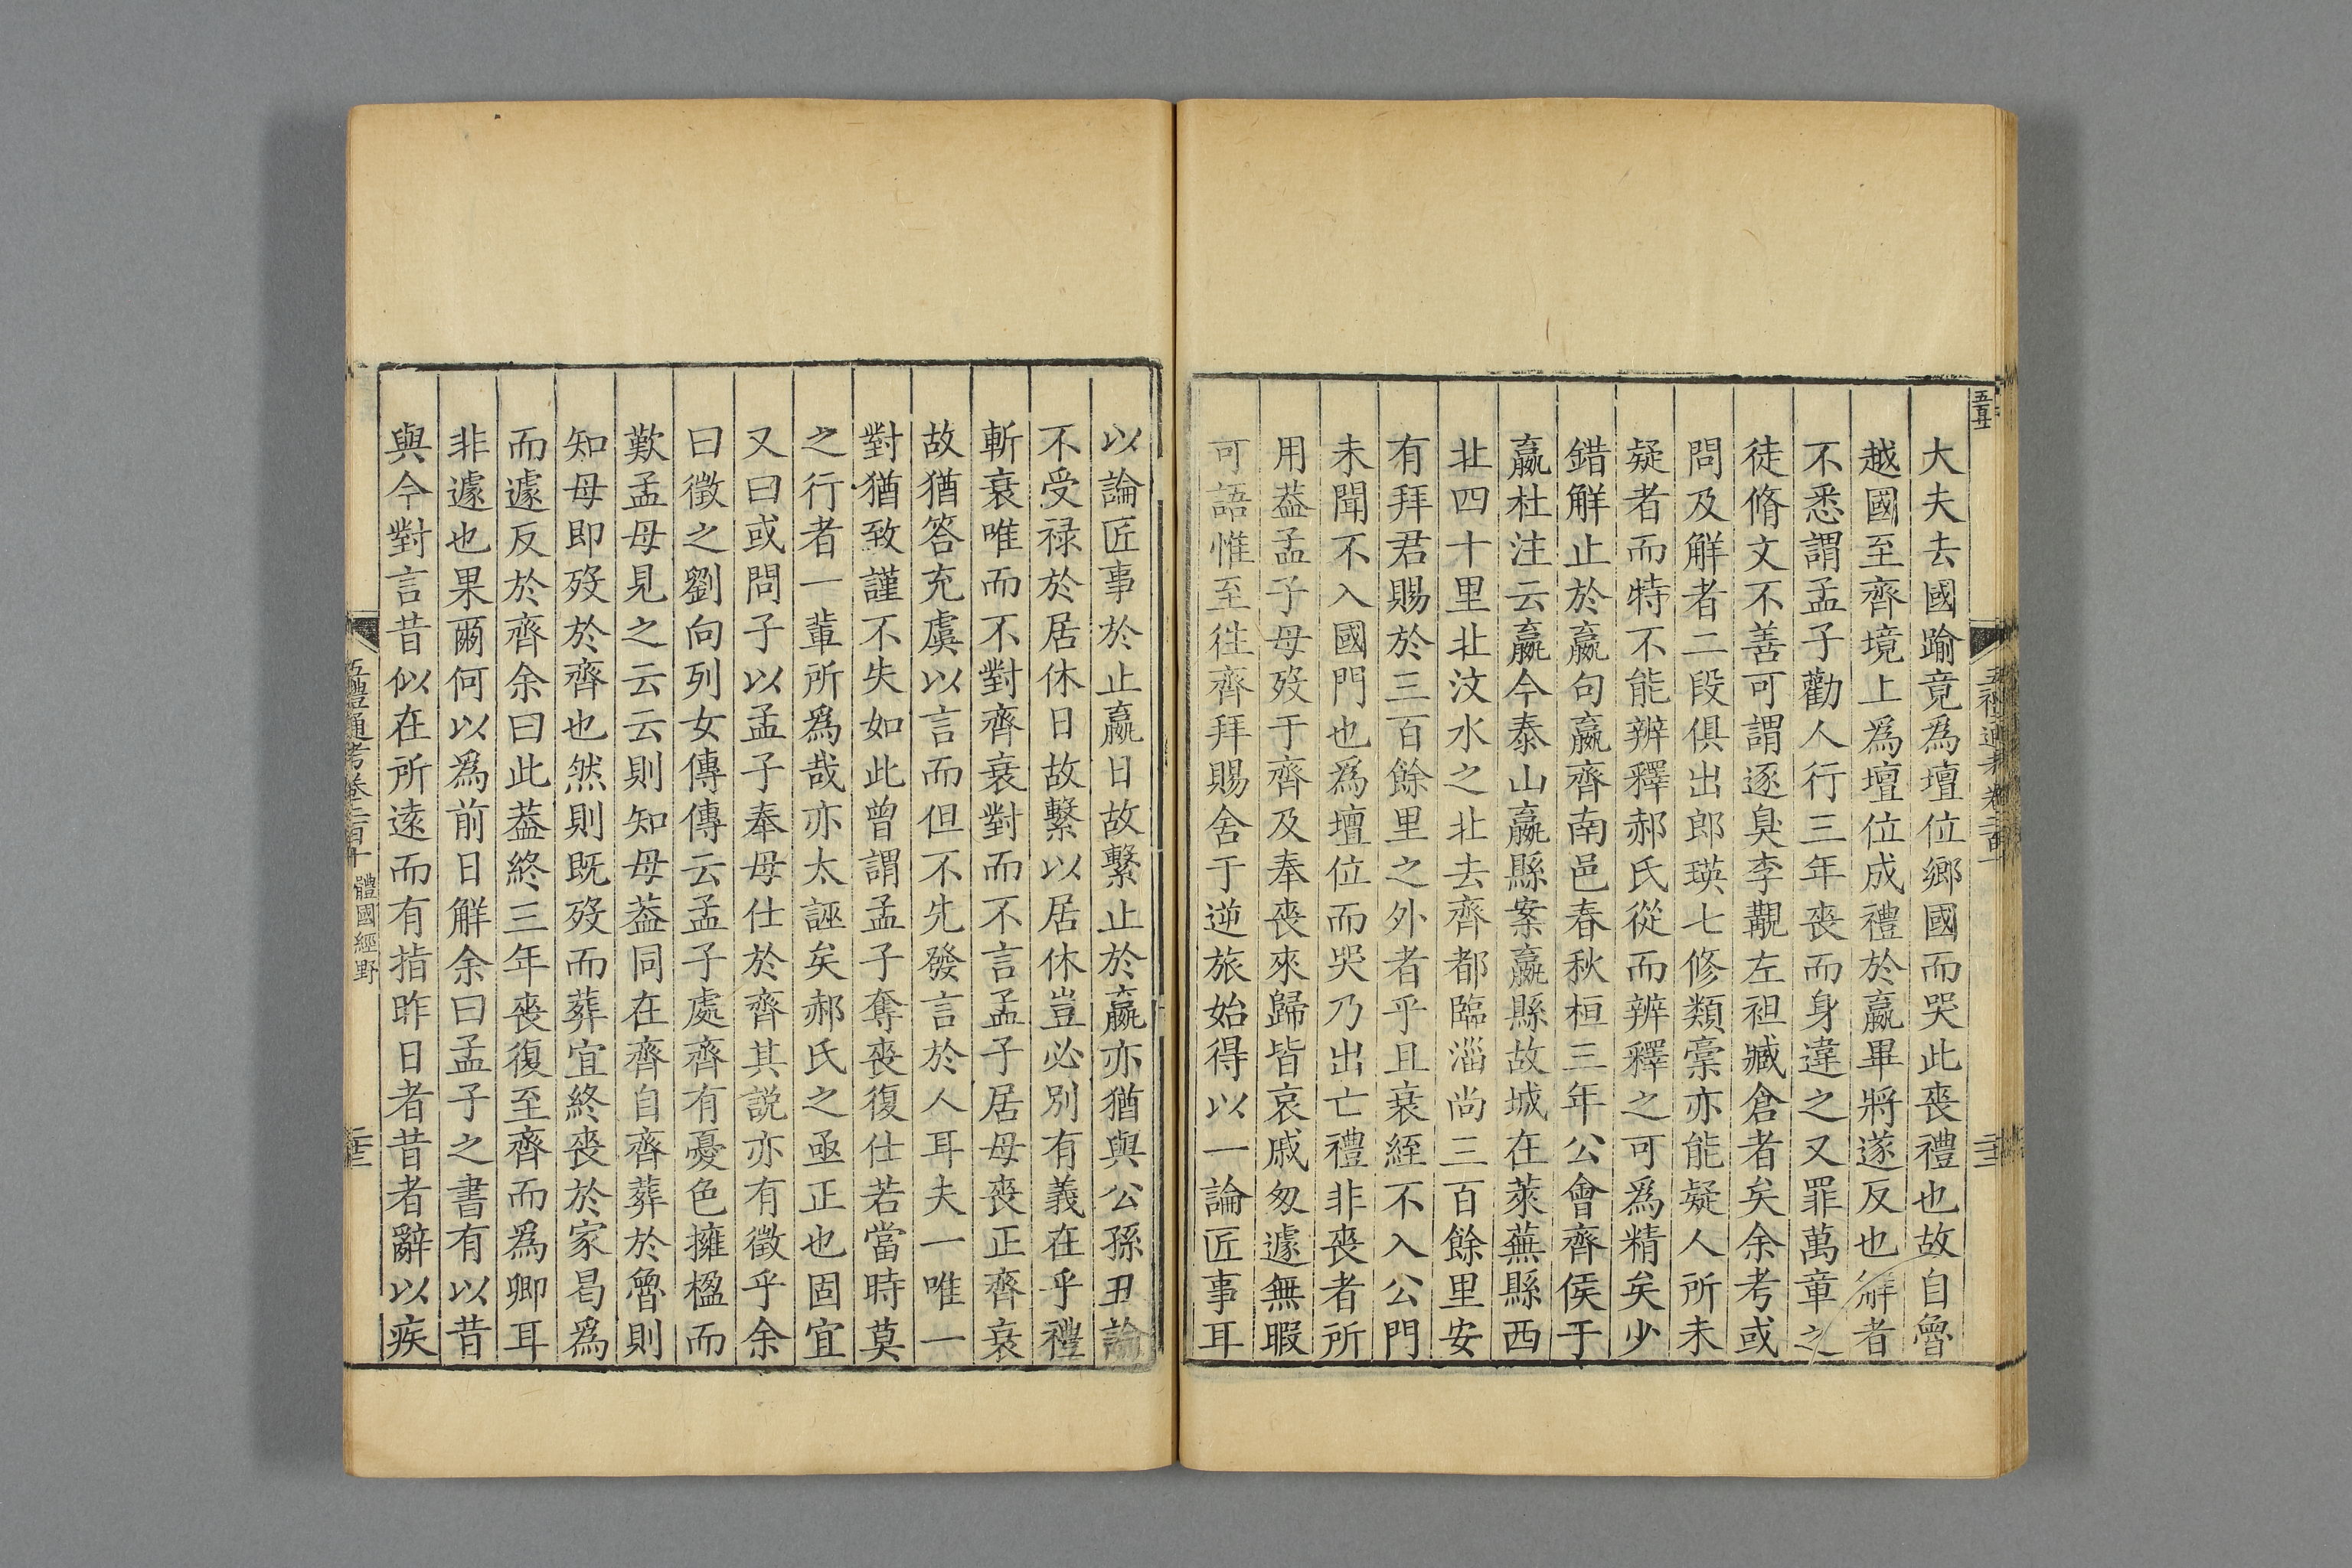 大夫去國踰竟爲壇位鄉國而哭此喪禮也故自魯
越國至齊境上爲壇位成禮於嬴畢將遂反也解者
不悉謂孟子勸人行三年喪而身違之又罪萬章之
徒脩文不善可謂逐臭李覯左袒臧倉者矣余考或
問及解者二段俱出郎瑛七修類稾亦能疑人所未
疑者而特不能辨釋郝氏從而辨釋之可爲精矣少
錯解止於嬴句嬴齊南邑春秋桓三年公會齊侯于
嬴杜注云嬴今泰山嬴縣案嬴縣故城在萊蕪縣西
北四十里北汶水之北去齊都臨淄尚三百餘里安
有拜君賜於三百餘里之外者乎且衰絰不入公門
未聞不入國門也爲壇位而哭乃出亡禮非喪者所
用葢孟子母歿于齊及奉喪來歸皆哀戚匆遽無暇
可語惟至往齊拜賜舍于逆旅始得以一論匠事耳
以論匠事於止嬴日故繫止於嬴亦猶與公孫丑論
不受禄於居休日故繫以居休豈必別有義在乎禮
斬衰唯而不對齊衰對而不言孟子居母喪正齊衰
故猶答充虞以言而但不先發言於人耳夫一唯一
對猶致謹不失如此曾謂孟子奪喪復仕若當時莫
之行者一輩所爲哉亦太誣矣郝氏之亟正也固宜
又曰或問子以孟子奉母仕於齊其説亦有徵乎余
曰徵之劉向列女傳傳云孟子處齊有憂色擁楹而
歎孟母見之云云則知母葢同在齊自齊葬於魯則
知母即歿於齊也然則既歿而葬宜終喪於家曷爲
而遽反於齊余曰此葢終三年喪復至齊而爲卿耳
非遽也果爾何以爲前日解余曰孟子之書有以昔
與今對言昔似在所遠而有指昨日者昔者辭以疾
五禮通考卷二百十
體國經野